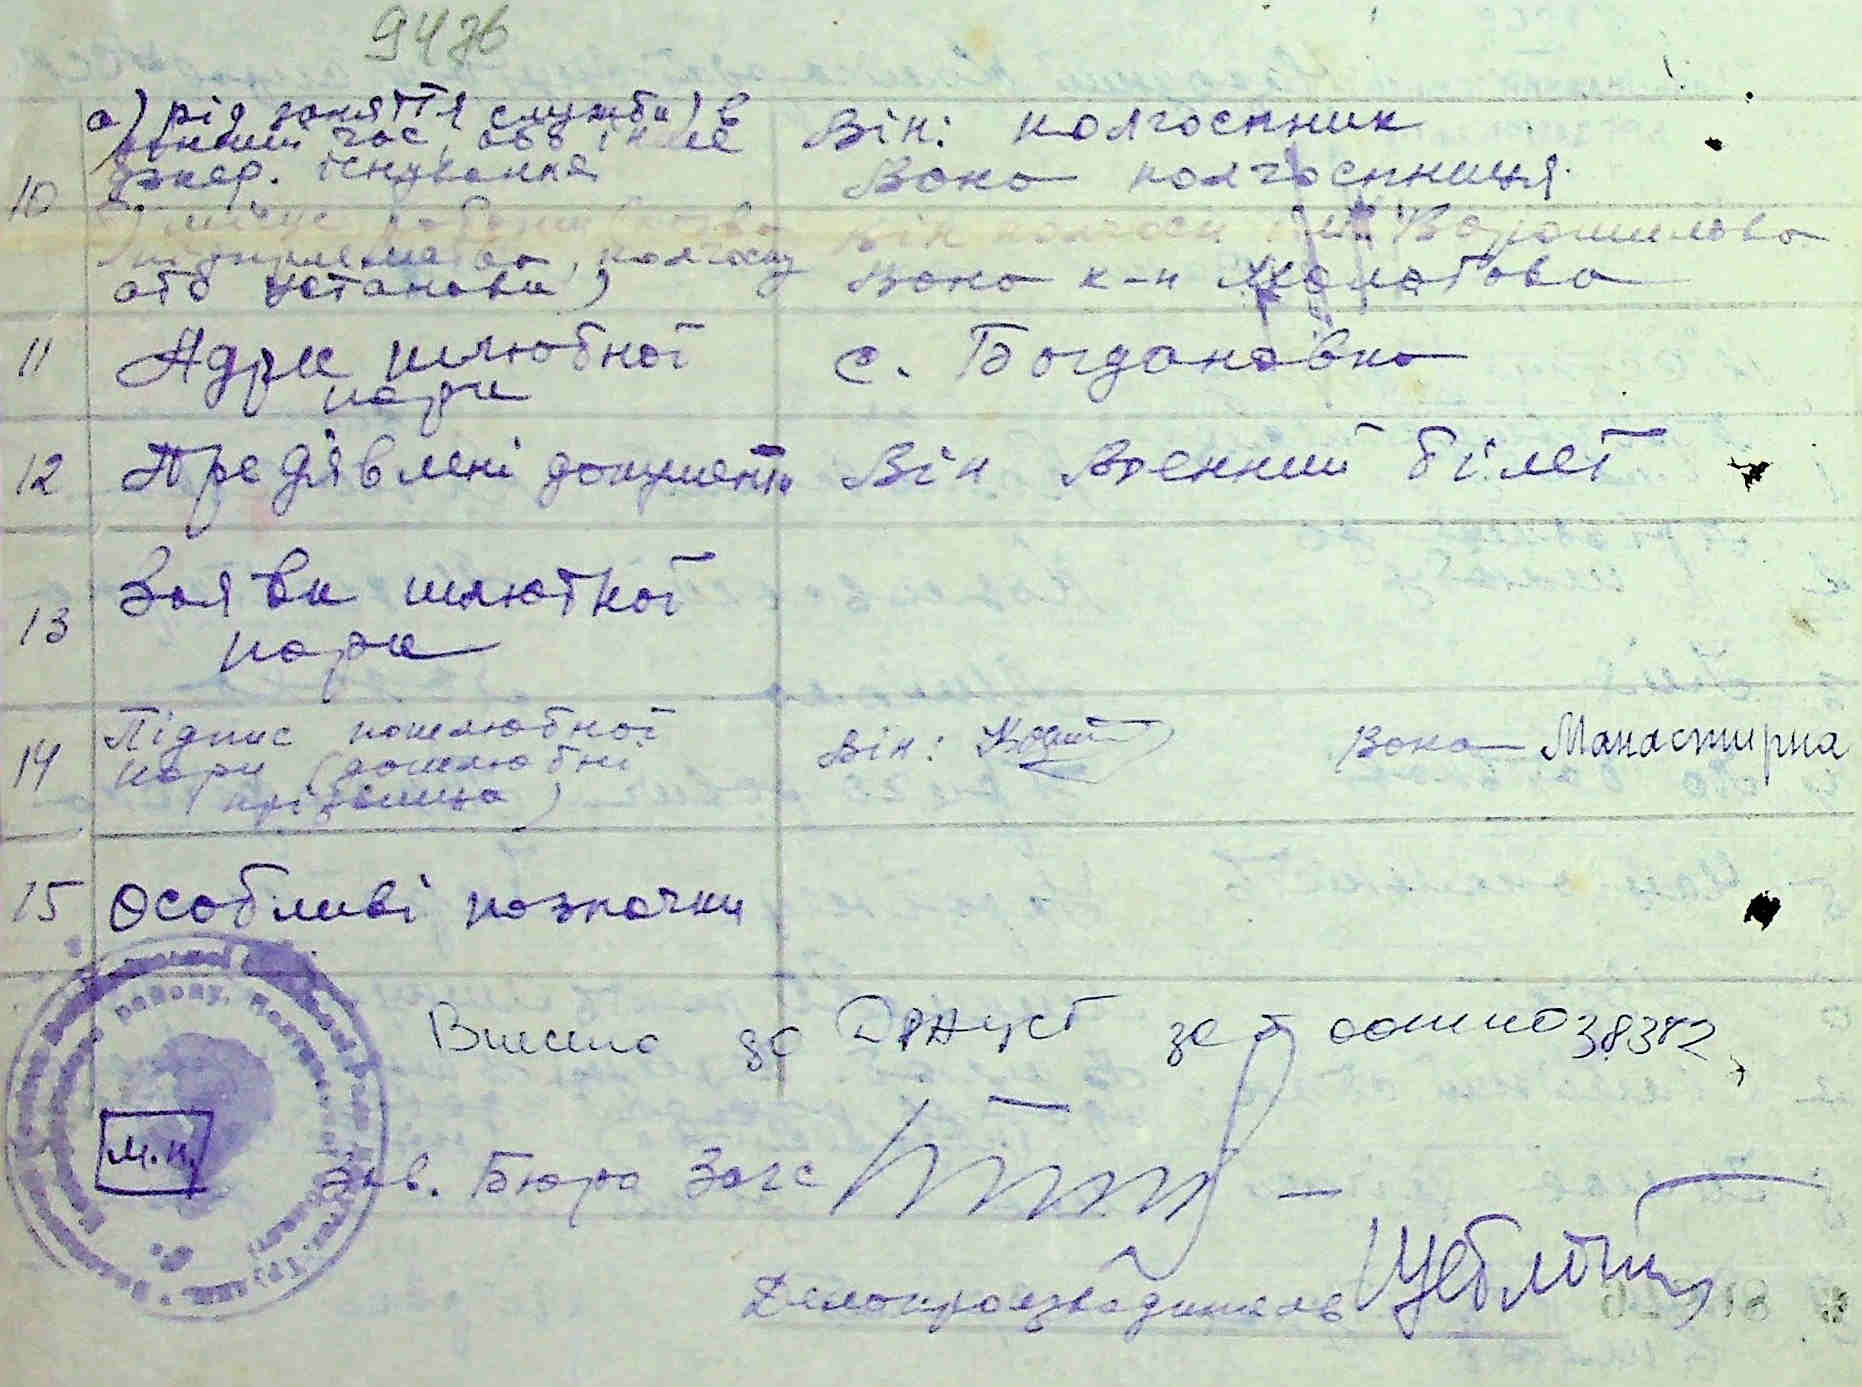 947зв
а) рід заняття (служби) в
даний час, або інше
джер. існування
Він: колгоспник
10
Вона колгоспниця.
підприємства, колгоспу
або установи)
Він колгосп ім. Ворошилова
Вона к-п Молотова
11 Адре шлюбної
пари
с. Богдановка
12 Предявлені документи Він Военний білет
13 Заяви шлюбної
пари
14 Підпис пошлюбної
пари (дошлюбні
прізвища)
Він:
Вона Манастирна
15 Особливі позначки
Внесено до ДРАЦСГ за 00411038382
М.П.
Зав. Бюро Загс
Делопроизводитель